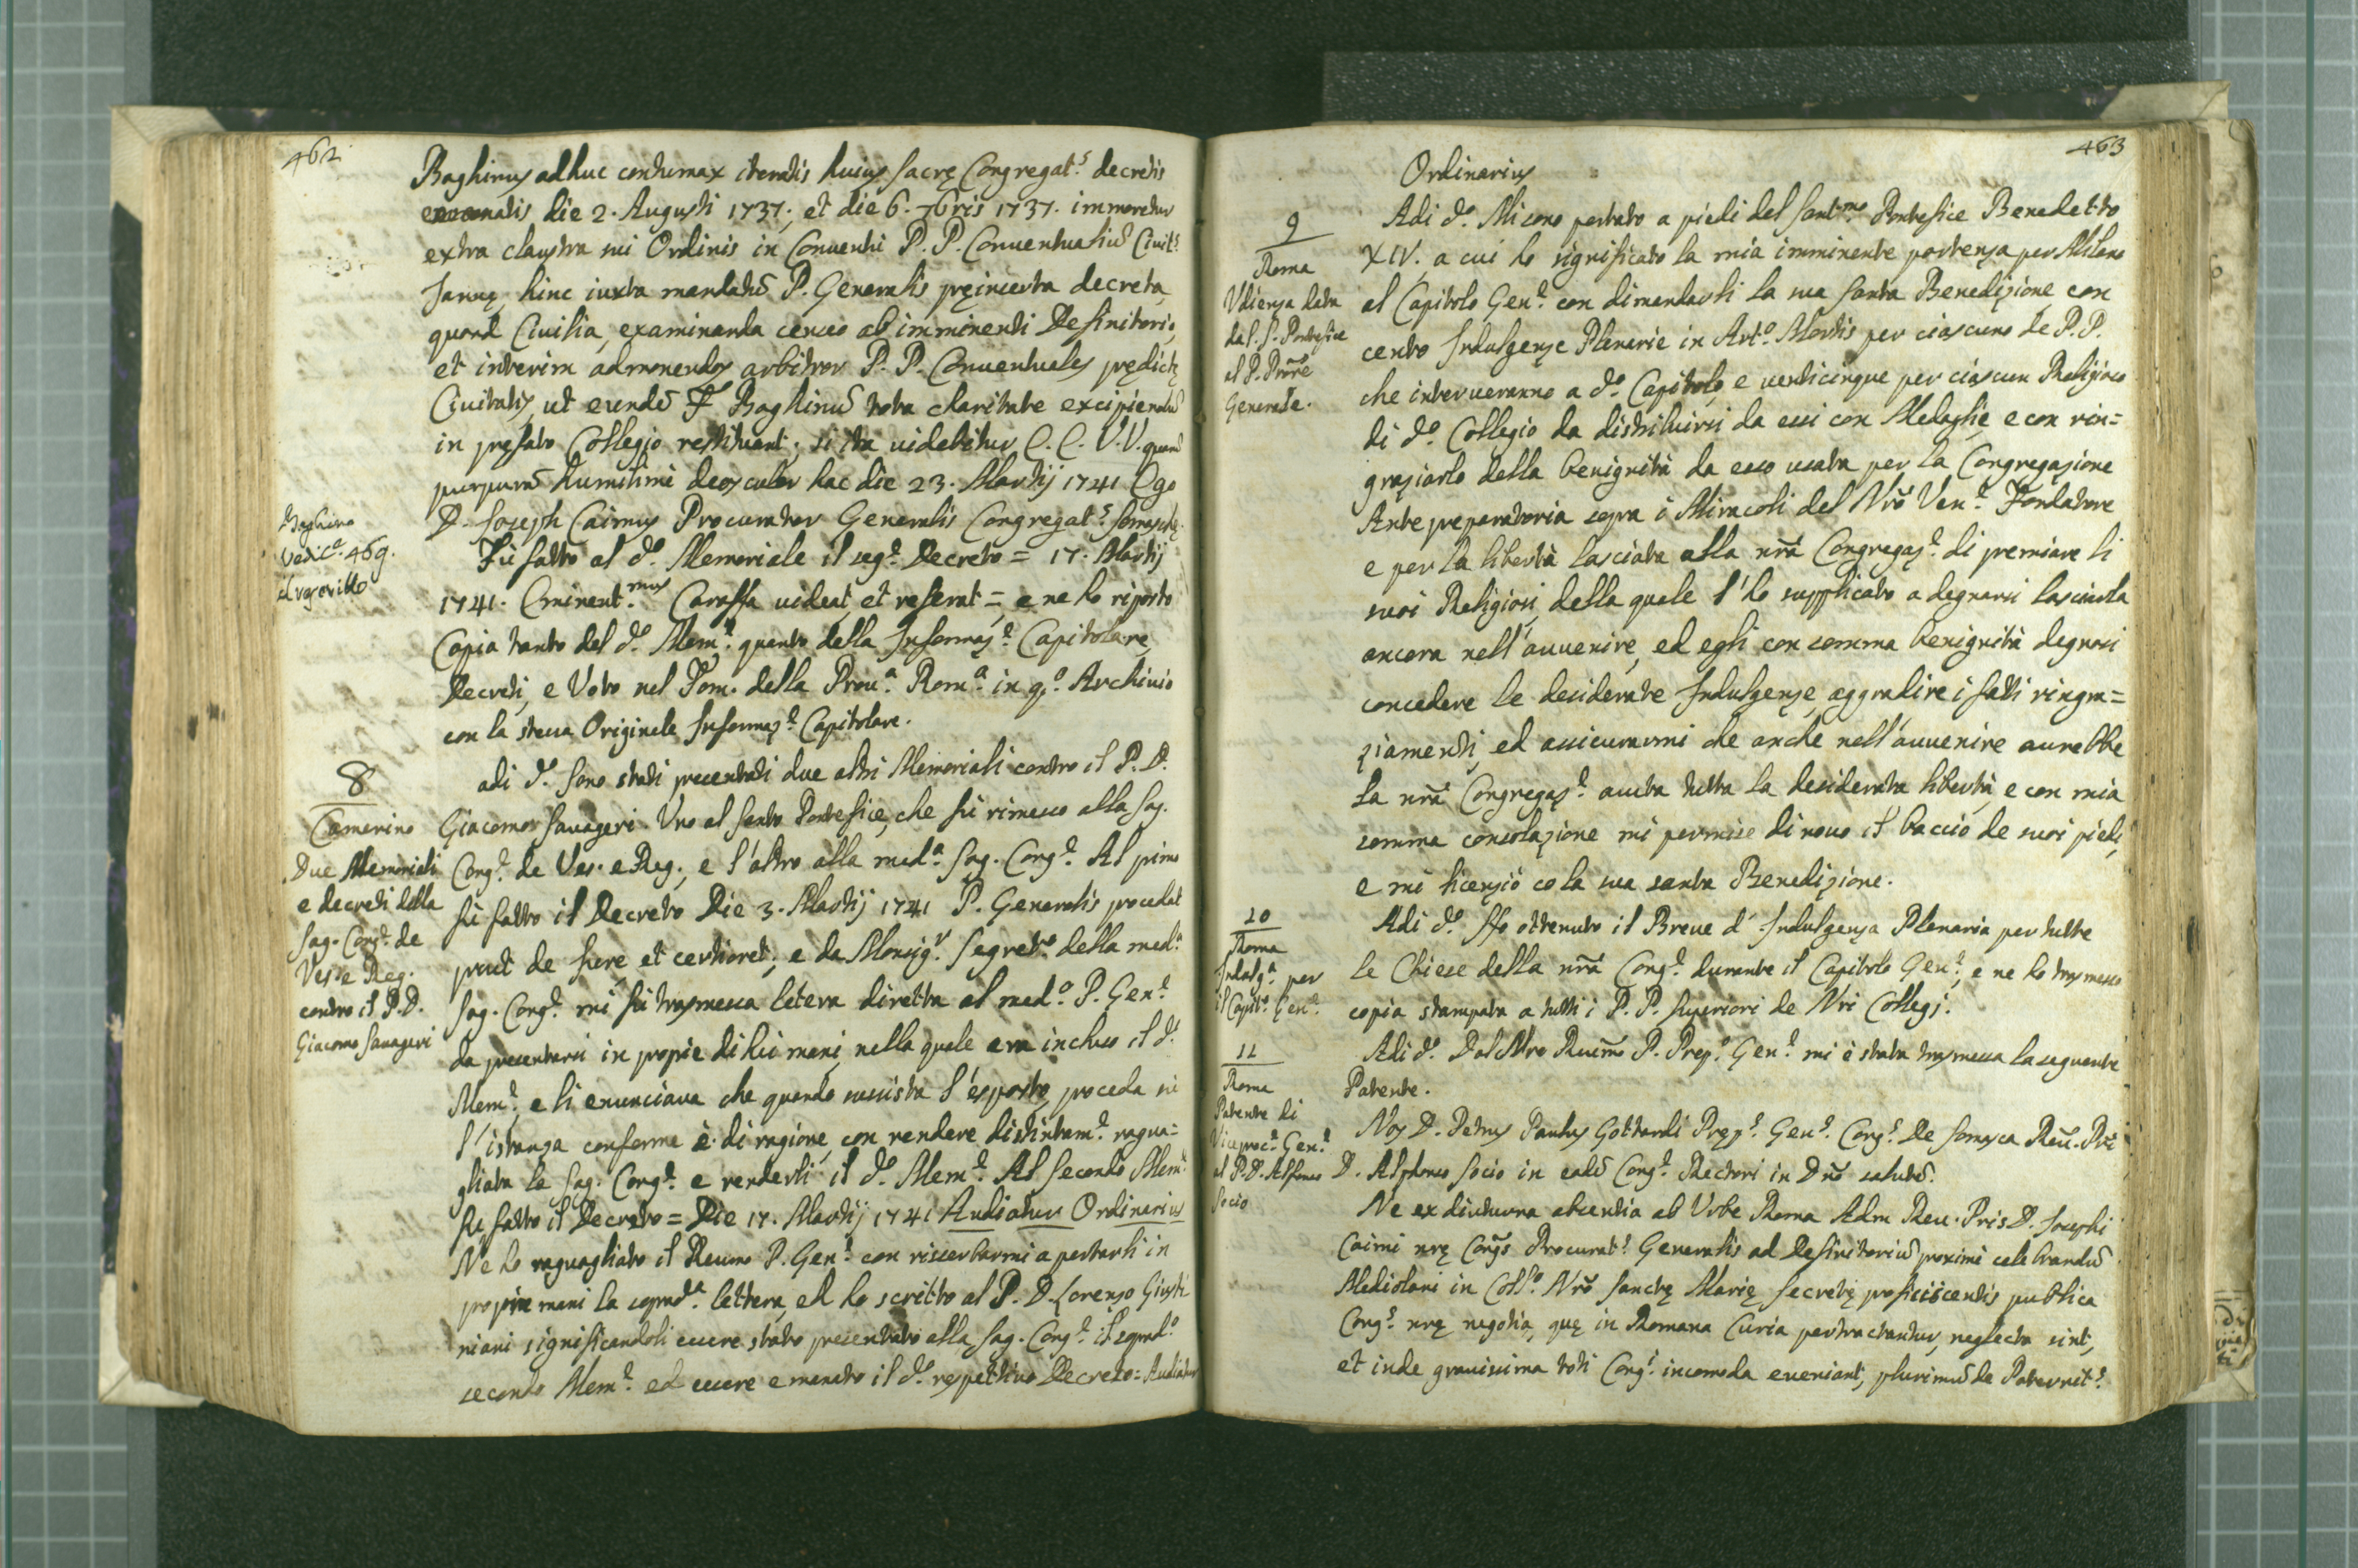 462
Baghinus adhuc contumax iteratis huius Sacrę Congregat.s decretis
emanatis die 2. Augusti 1737; et die 6. 7bris 1737. immoretur
extra claustra sui Ordinis in Conventu P.P. Conventualiū Civit.s
Januę, hinc iuxta mandatū P. Generalis pręinserta decreta,
quoad Civilia, examinanda censeo ab imminenti Definitorio,
et interim admonendos arbitror P.P. Conventuales prędictę
Civitatis, ut eundē F. Baghinū tota charitate excipiendū
in pręfato Collegio restituant, si ita videbitur E.E. V.V. quarū
purpurā humilimè deosculor hac die 23. Martij 1741 Ego
D. Joseph Caimus Procurator Generalis Congregat.s Somaschę.
Baghino
vedi c.e 469.
Fù fatto al d.o Memoriale il seg.e Decreto = 17. Martij
1741. Eminent.mus Caraffa videat, et referat =, e ne hò riposto
Copia tanto del d.o Mem.e quanto della Informaz.e Capitolare,
Decreti, e Voto nel Tom. della Prou.a Rom.a in q.o Archivio
con la stessa Originale Informaz.e Capitolare.
8
Camerino
Due Memoriali
e decreti della
Sag. Cong.e de
Ves. e Reg.
contro il P.D.
Giacomo Savageri
adi d.o Sono stati presentati due altri Memoriali contro il P.D.
Giacomo Savageri. Uno al Santo Pontefice, che fù rimesso alla Sag.
Cong.e de Ves. e Reg., e l'altro alla med.a Sag. Cong.e Al primo
fù fatto il Decreto Die 3. Martij 1741 P. Generalis procedat
prout de iure, et certioret; e da Monsig.r Segret.o della med.a
Sag. Cong.e mi fù trasmessa letera diretta al med.o P. Gen.e
da presentarsi in proprie di lui mani, nella quale era incluso il d.o
Mem.e e li enunciava che quando sussista l'esposto, proceda su
l'istanza conforme è di ragione, con rendere distintam.e ragua=
gliata la Sag. Cong.e e renderli il d.o Mem.e Al Secondo Mem.e
fù fatto il Decreto = Die 17. Martij 1741 Audiatur Ordinarius
Ne hò raguagliato il Reumo P. Gen.e con risserbarmi a portarli in
proprie mani la soprad.a lettera, ed hò scritto al P. D. Lorenzo Giusti
niani significandoli essere stato presentato alla Sag. Cong.e il soprad.o
secondo Mem.e ed essere emanato il d.o respettivo Decreto = Audiatur
463
Ordinarius
9
Roma
Udienza data
dal S. Pontefice
al P. Prōre
Generale.
Adi d.o Mi sono portato a piedi del Sant.mo Pontefice Benedetto
XIV. a cui hò significato la mia imminente partenza per Milano
al Capitolo Gen.e con dimandarli la sua Santa Benedizione con
cento Indulgenze Plenarie in Art.o Mortis per ciascuno de P.P.
che interveranno a d.o Capitolo, e venticinque per ciascun Religioso
di d.o Collegio da distribuirsi da essi con Medaglie, e con rin=
graziarlo della benignità da esso usata per la Congregazione
Antepreparatoria sopra i Miracoli del Nrō Ven.e Fondatore
e per la libertà lasciata alla nrā Congregaz.e di premiare li
suoi Religiosi, della quale l'hò supplicato a degnarsi lasciarla
ancora nell'avvenire, ed egli con somma benignità degnosi
concedere le desiderate Indulgenze, aggradire i fatti ringra=
ziamenti, ed assicurarmi che anche nell'avvenire avrebbe
la nrā Congregaz.e avuta tutta la desiderata libertà, e con mia
somma consolazione mi permise di novo il baccio de suoi piedi,
e mi licenziò co la sua santa Benedizione.
10
Roma
Indulg.a per
il Capit.o Gen.e
Adi d.o Hò ottenuto il Breve d'Indulgenza Plenaria per tutte
le Chiese della nrā Cong.e durante il Capitolo Gen.e, e ne hò trasmesso
copia stampata a tutti i P.P. Superiori de Nri Collegj.
11
Roma
Patente di
Viceproc.e Gen.e
al P.D. Alfonso
Socio
Adi d.o Dal Nro Reuīmo P. Prep.o Gen.e mi è stata trasmessa la seguente
Patente.
Nos D. Petrus Paulus Gottardi Pręp.s Gen.s Cong.s De Somasca Reu. Pri
D. Alphonso Socio in eadē Cong.e Rectori in Dnō salutē.
Ne ex diuturna absentia ab Urbe Roma Adm Reu. Pris D. Josephi
Caimi nrę Congs Procurat.s Generalis ad Definitoriū proximè celebrandū
Mediolani in Coll.o Nrō Sanctę Marię Secretę proficiscentis publica
Cong.s nrę negotia, quę in Romana Curia pertractantur, neglecta sint,
et inde gravissima toti Cong.i incomoda eveniant, plurimū de Paternit.s